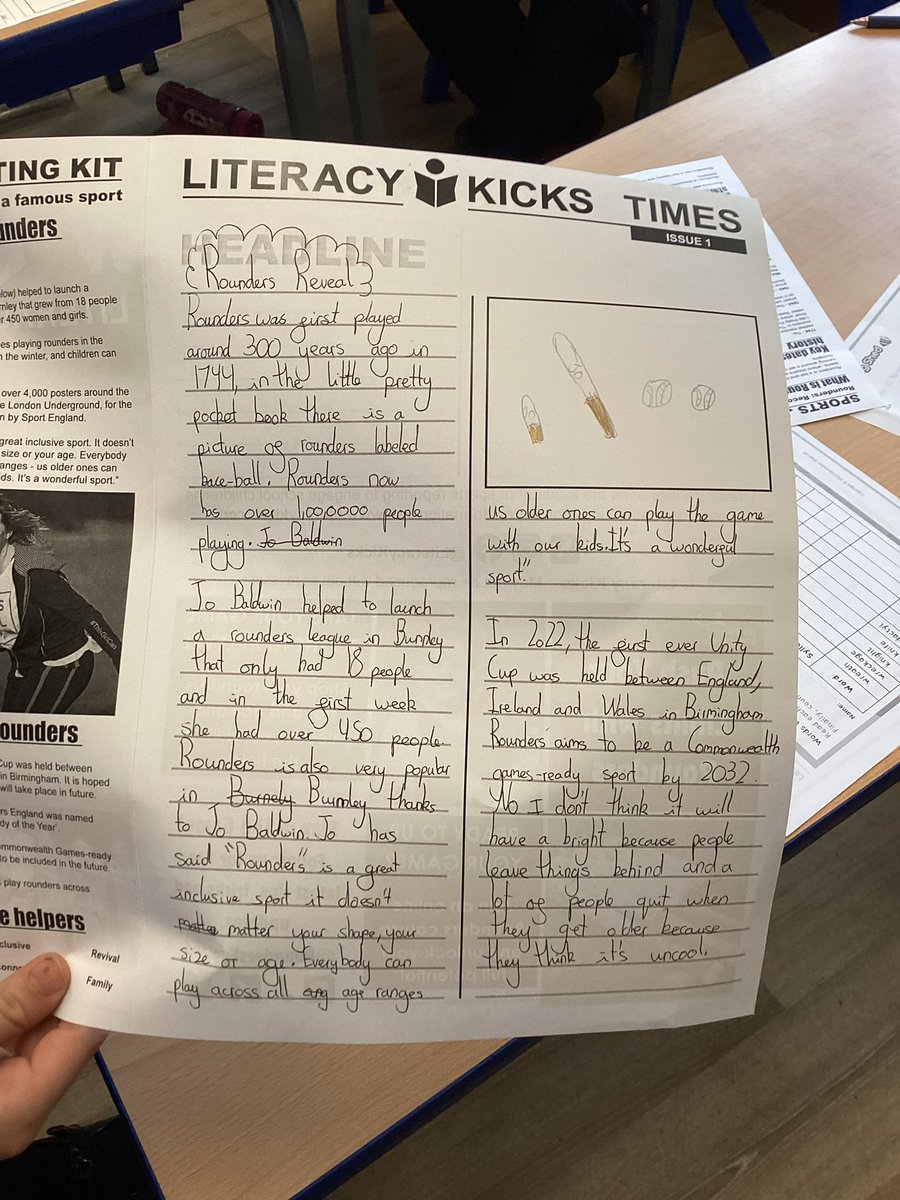 TING KIT
a famous sport
unders
low) helped to launch a
rnley that grew from 18 people
r 450 women and girls.
es playing rounders in the
n the winter, and children can
over 4,000 posters around the
e London Underground, for the
n by Sport England.
great inclusive sport. It doesn't
size or your age. Everybody
anges - us older ones can
ids. It's a wonderful sport."
#ThisGirlCan
ounders
Cup was held between
in Birmingham. It is hoped
will take place in future.
rs England was named
dy of the Year'.
mmonwealth Games-ready
to be included in the future.
s play rounders across
e helpers
clusive
Revival
Family
LITERACY KICKS TIMES
ISSUE 1
HEADLINE
Rounders Reveal
Rounders was first played
around 300 years ago in
1744, in the little pretty
pocket book there is a
picture of rounders labeled
base-ball. Rounders now
has over 1,00,0000 people
playing. Jo Baldwin
Jo Baldwin helped to launch
a rounders league in Burnley
that only had 18 people
and in the first week
she had over 450 people.
Rounders is also very popular
in Burnely Burnley thanks
to Jo Baldwin. Jo has
said "Rounders" is a great
inclusive sport it doesn't
mattee matter your shape, your
size or age. Everybody can
play across all ang age ranges
us older ones can play the game
with our kids. It's a wonderful
sport."
In 2022, the first ever Unity
Cup was held between England,
Ireland and Wales in Birmingham
Rounders aims to be a Commonwealth
games-ready sport by 2032.
No I don't think it will
have a bright because people
leave things behind and a
lot of people quit when
they get older because
they think it's uncool.
SPORTS
What is Rou
Key date
history
Name:
Word
wreath
wreckage
knight
knife
Sylla